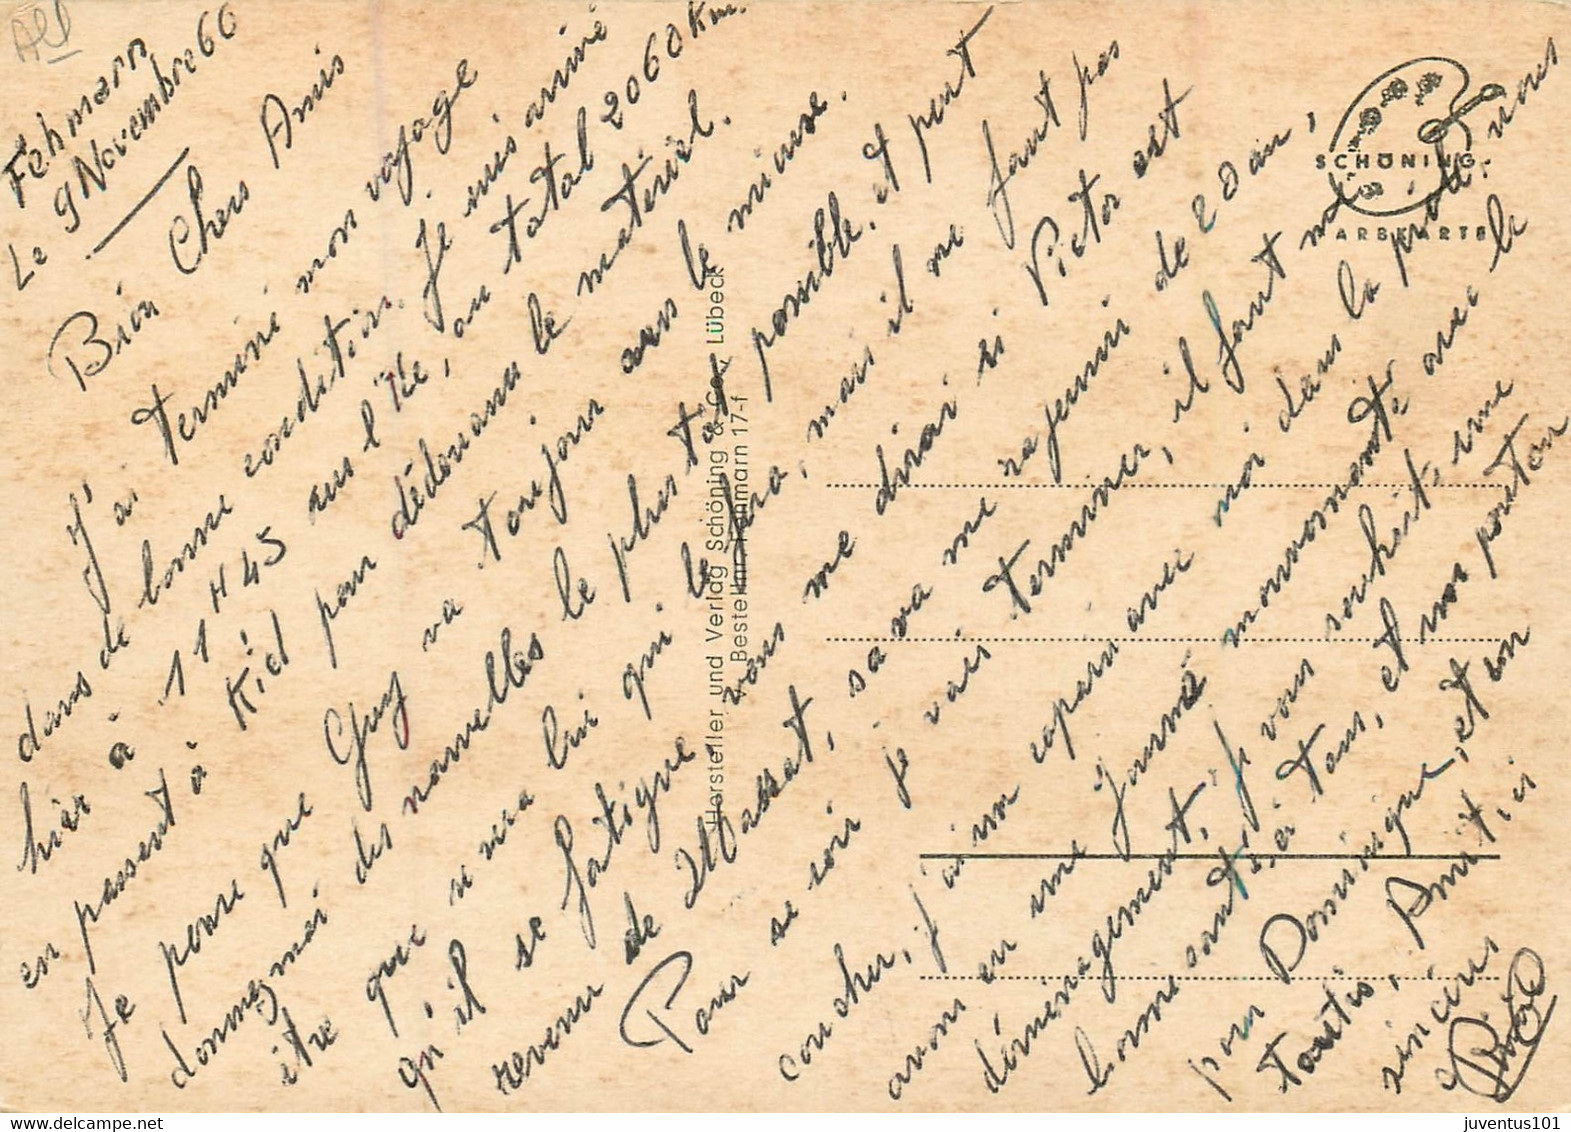 Fehmarn
Le 9 Novembre 66
Bien Chers Amis
J'ai terminé mon voyage
dans de bonne condition. Je suis arrivé
hier à 11H45 sur l'île, au total 2060 Km.
en passent à Kiel pour dédouaner le materiel.
Je pense que Guy va toujour vers le mieux.
donnez moi des nouvelles le plus tôt possible. et peut
être que sera lui qui le fera, mais il ne faut pas
qu'il se fatigue. vous me dirai si Victor est
revenu de, sa va me rajeuni de 20 an,
Pour se soir je vais terminer, il faut me
coucher, j'ai un copain avec moi dans la, nous
avons eu une journé mouvomenté avec le
déménagement, je vous souhait, une
bonne santé, à tous, et un pouton
pour Dominique, et un
Toutis, Amitii
sincères
SCHÖNING
ARBKARTE
Hersteller und Verlag Schöning & Co., Lübeck
Bestellnr. Fehmarn 17-f
juventus101